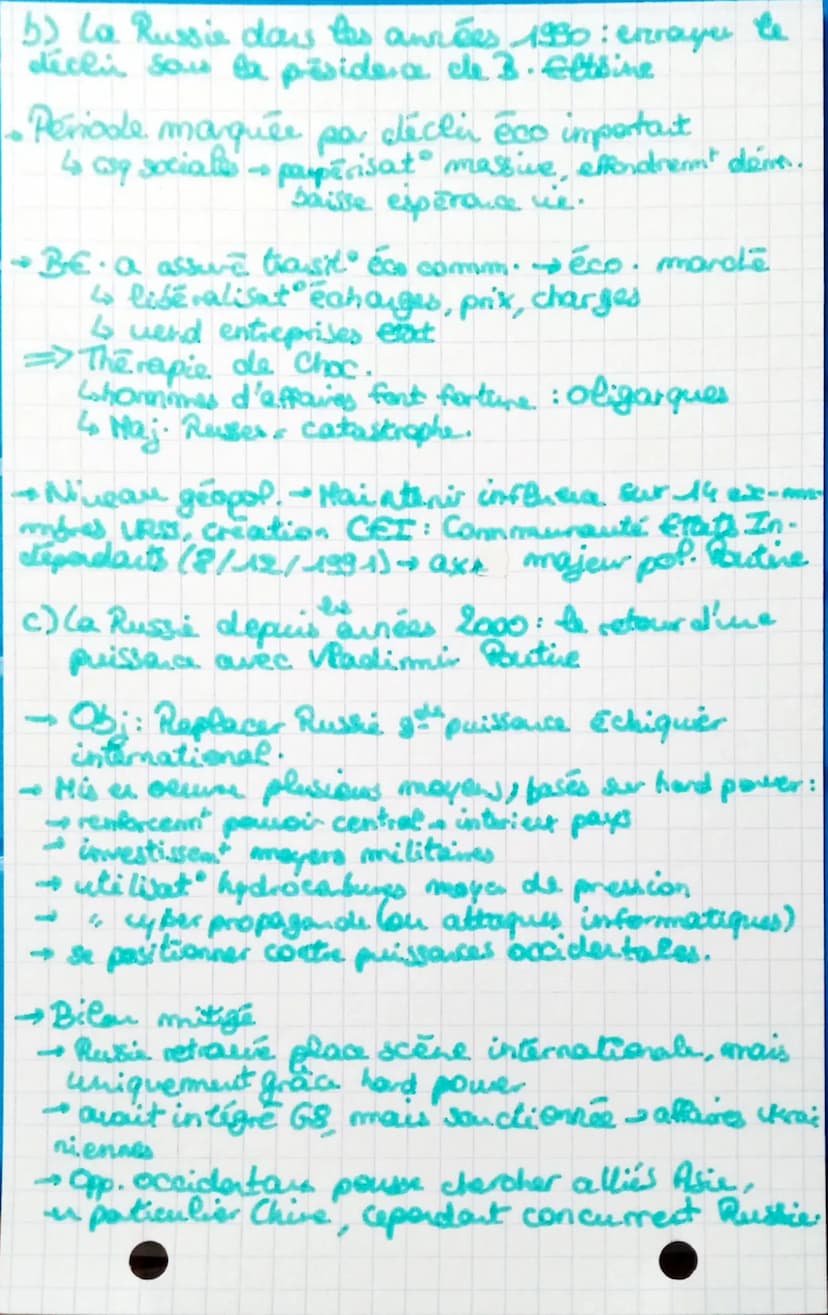 b) La Russie dans les années 1990 : enrayer le
déclin sous la présidence de B. Eltsine
• Période marquée par déclin éco important
↳ csq sociales → paupérisat° massive, effondremt dém.
baisse espérance vie.
→ B.E. a assuré transit° éco comm. → éco. marché
↳ libéralisat° échanges, prix, charges
↳ vend entreprises état
=> Thérapie de Choc.
↳ hommes d'affaires font fortune : oligarques
↳ Maj. Russes = catastrophe.
→ Niveau géopol. → Maintenir influence sur 14 ex-me-
mbres URSS, création CEI : Communauté Etats In-
dépendants (8/12/1991) → axe majeur pol. Poutine
c) La Russie depuis les années 2000 : le retour d'une
puissance avec Vladimir Poutine
→ Obj : Replacer Russie gde puissance échiquier
international.
→ Mis en oeuvre plusieurs moyens, basés sur hard power :
→ renforcemt pouvoir central → intérieur pays
→ investissemt moyens militaires
→ utilisat° hydrocarbures moyen de pression
→ " cyber propagande (ou attaques informatiques)
→ se positionner contre puissances occidentales.
→ Bilan mitigé
→ Russie retrouvé place scène internationale, mais
uniquement grâce hard power
→ avait intégré G8, mais sanctionnée → affaires ukrai
niennes
→ Opp. occidentaux pousse chercher alliés Asie,
en particulier Chine, cependant concurrect Russie.